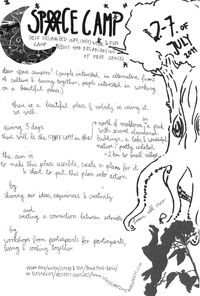 SPACE CAMP
2.-7. of
JULY
2011
SELF ORGANIZED
CAMP
OF FREE SPACES
dear space campers! (people interested in alternative forms
of culture & living together, people interested in working
on a beautiful place)
there is a beautiful place & nobody is using it
so well.
during 5 days
there will be the SPACE CAMP in the
north of maribor, a park
with several abandoned
buildings, a lake & wonderful
nature / pretty isolated
- 2 km to small village
the aim is
to make this place useable, create a plan for it
& start to put this plan into action
by
sharing our ideas, experiences & creativity
and
creating a connection between activists
by
workshops from participants for participants,
living & cooking together.